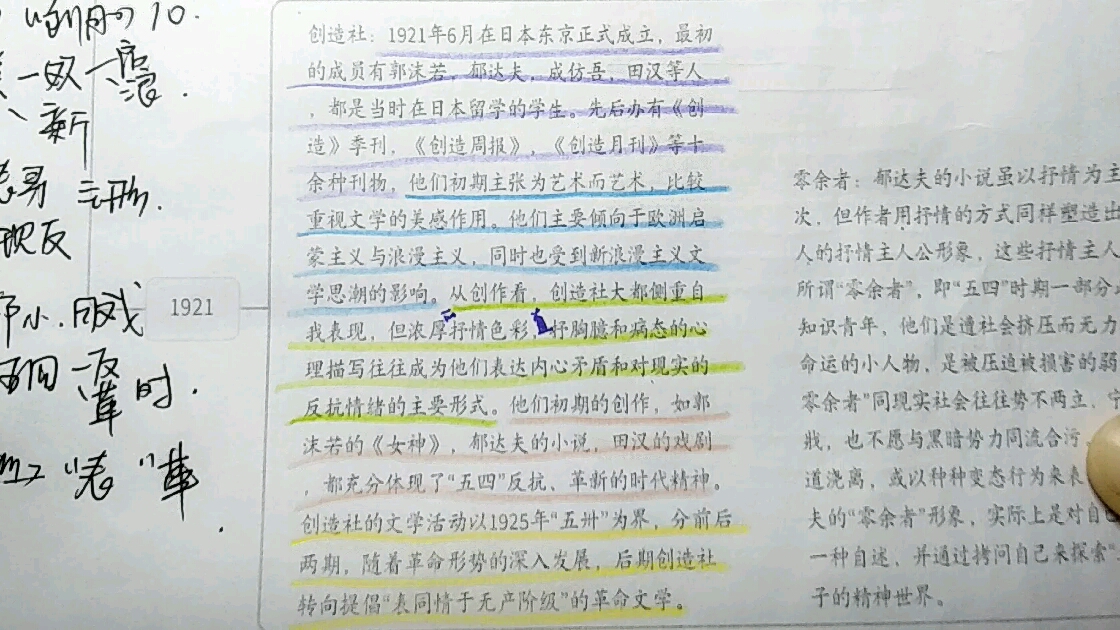 一浪.
新
三形.
1921
创造社：1921年6月在日本东京正式成立，最初
的成员有郭沫若，郁达夫，成仿吾，田汉等人
，都是当时在日本留学的学生。先后办有《创
造》季刊，《创造周报》，《创造月刊》等十
余种刊物，他们初期主张为艺术而艺术，比较
重视文学的美感作用。他们主要倾向于欧洲启
蒙主义与浪漫主义，同时也受到新浪漫主义文
学思潮的影响。从创作看，创造社大都侧重自
我表现，但浓厚抒情色彩，抒胸臆和病态的心
理描写往往成为他们表达内心矛盾和对现实的
反抗情绪的主要形式。他们初期的创作，如郭
沫若的《女神》，郁达夫的小说，田汉的戏剧
，都充分体现了“五四”反抗、革新的时代精神。
创造社的文学活动以1925年“五卅”为界，分前后
两期，随着革命形势的深入发展，后期创造社
转向提倡“表同情于无产阶级”的革命文学。
零余者：郁达夫的小说虽以抒情为主
次，但作者用抒情的方式同样塑造出
人的抒情主人公形象，这些抒情主人
所谓“零余者”，即“五四”时期一部分
知识青年，他们是遭社会挤压而无力
命运的小人物，是被压迫被损害的弱
零余者”同现实社会往往势不两立，宁
戕，也不愿与黑暗势力同流合污
道浇离，或以种种变态行为来表
夫的“零余者”形象，实际上是对自
一种自述，并通过拷问自己来探索
子的精神世界。